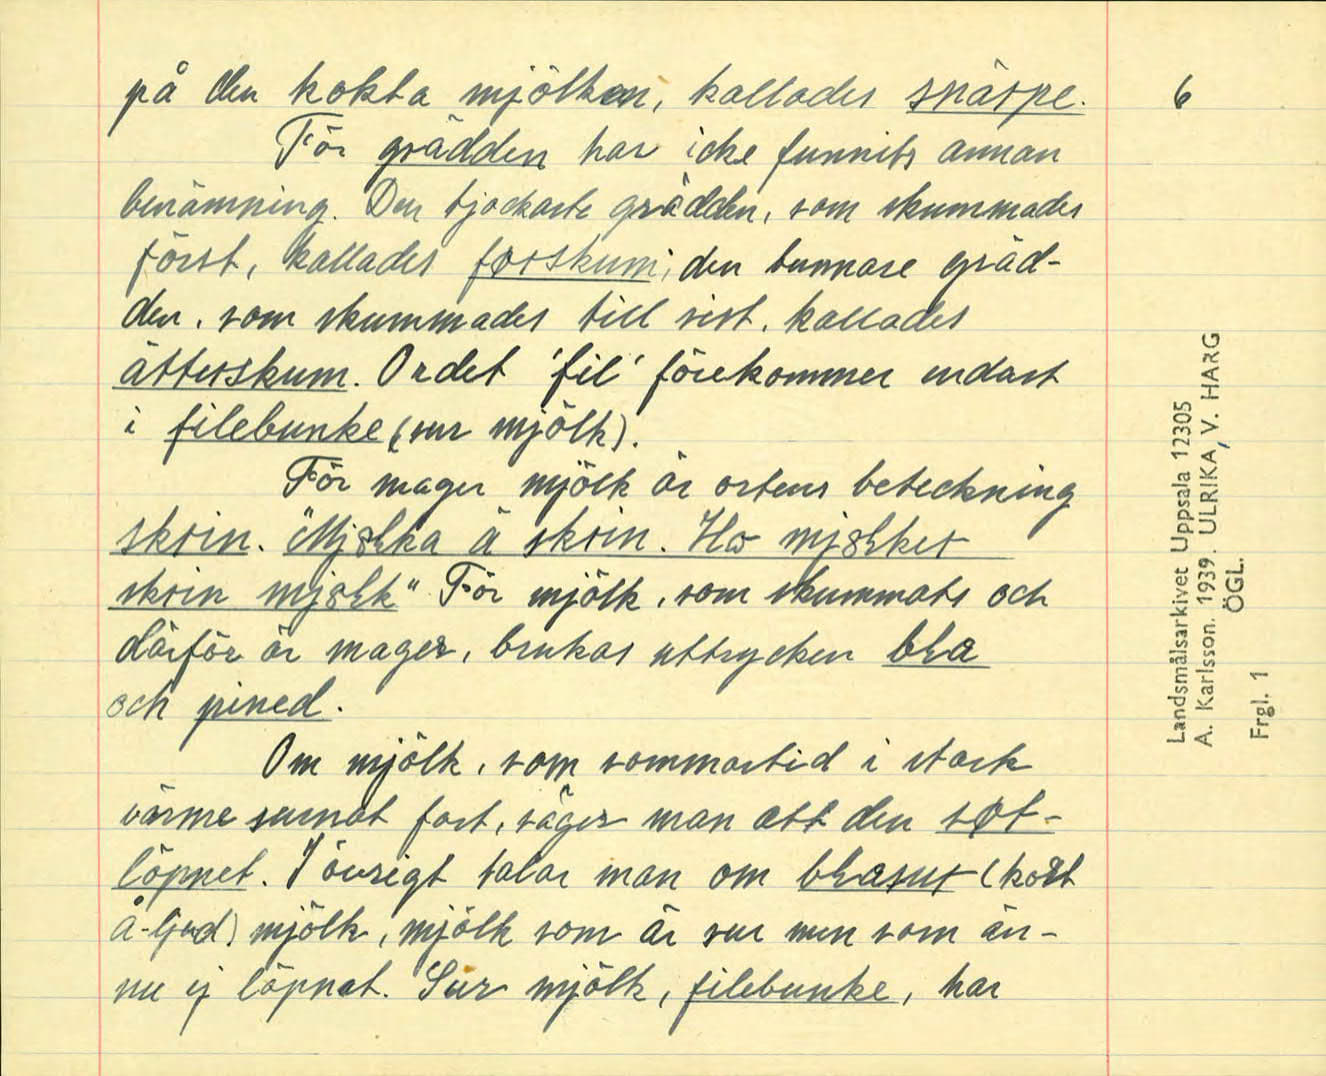 på den kokta mjölken, kallades snärpe.
För grädden har icke funnits annan
benämning. Den tjockaste grädden, som skummades
först, kallades førskum; den tunnare gräd-
den, som skummades till sist, kallades
ätterskum. Ordet 'fil' förekommer endast
i filebunke (sur mjölk).
För mager mjölk är ortens beteckning
skrin. "Mjølka ä skrin. Ho mjølker
skrin mjølk" För mjölk, som skummats och
därför är mager, brukas uttrycken bla
och pined.
Om mjölk, som sommartid i stark
värme surnat fort, säger man att den søt-
löpnet. I övrigt talar man om blasur (kort
å-ljud) mjölk, mjölk som är sur men som än-
nu ej löpnat. Sur mjölk, filebunke, har
6
Landsmålsarkivet Uppsala 12305
A. Karlsson. 1939. ULRIKA, V. HARG
ÖGL.
Frgl. 1